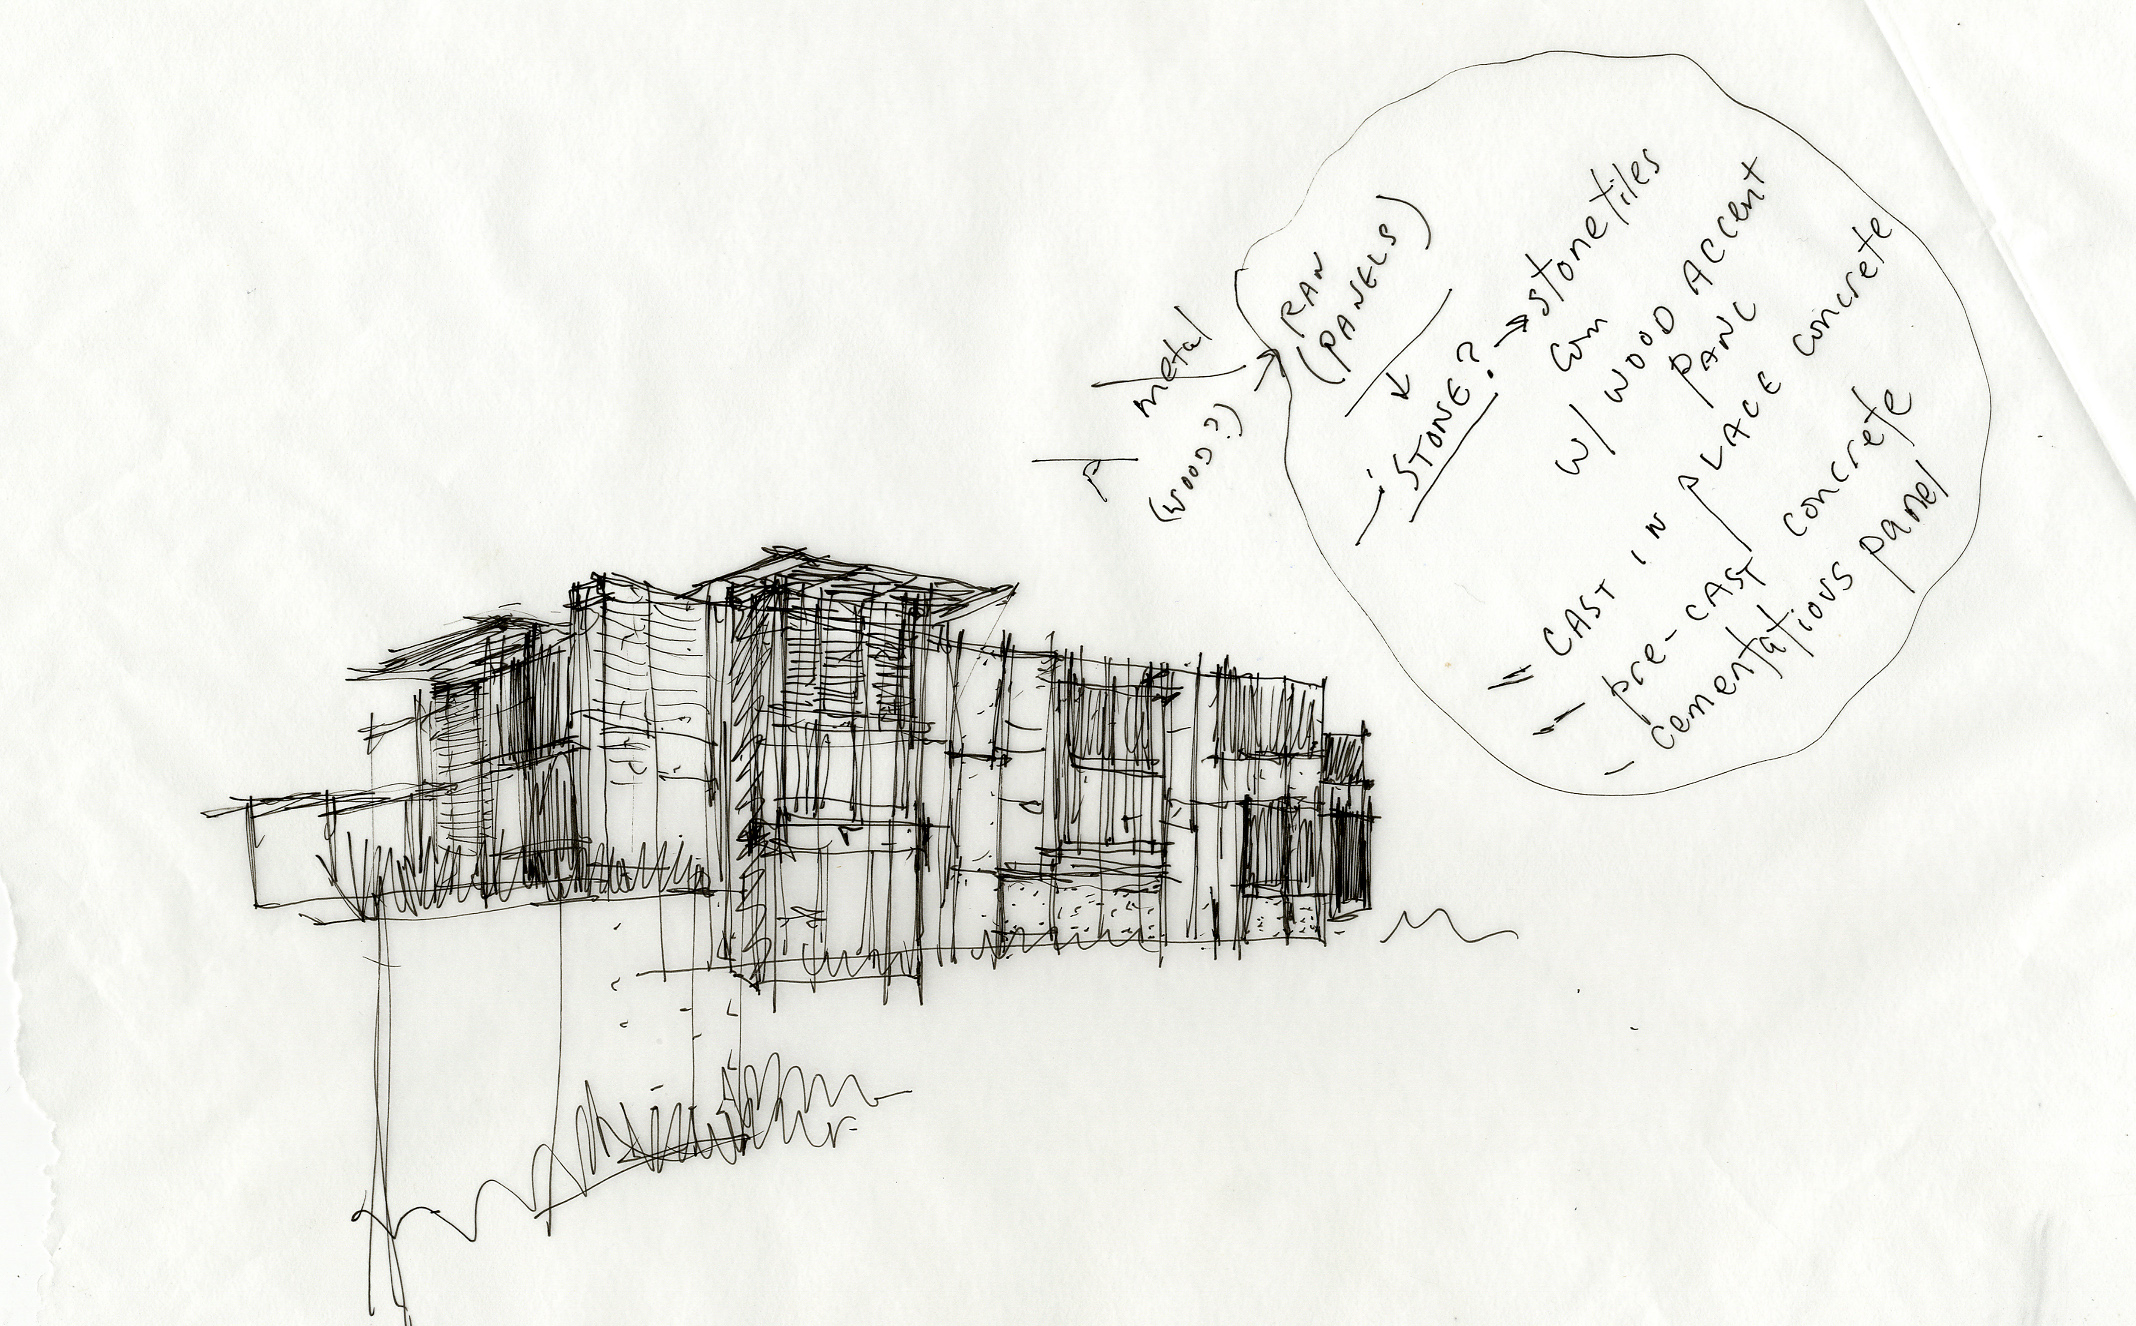 metal
(WOOD?)
RAN
(PANELS)
STONE? → stone tiles
com
w/ WOOD ACCENT
PANL
= CAST IN PLACE concrete
- pre-CAST concrete
- cementatious panel